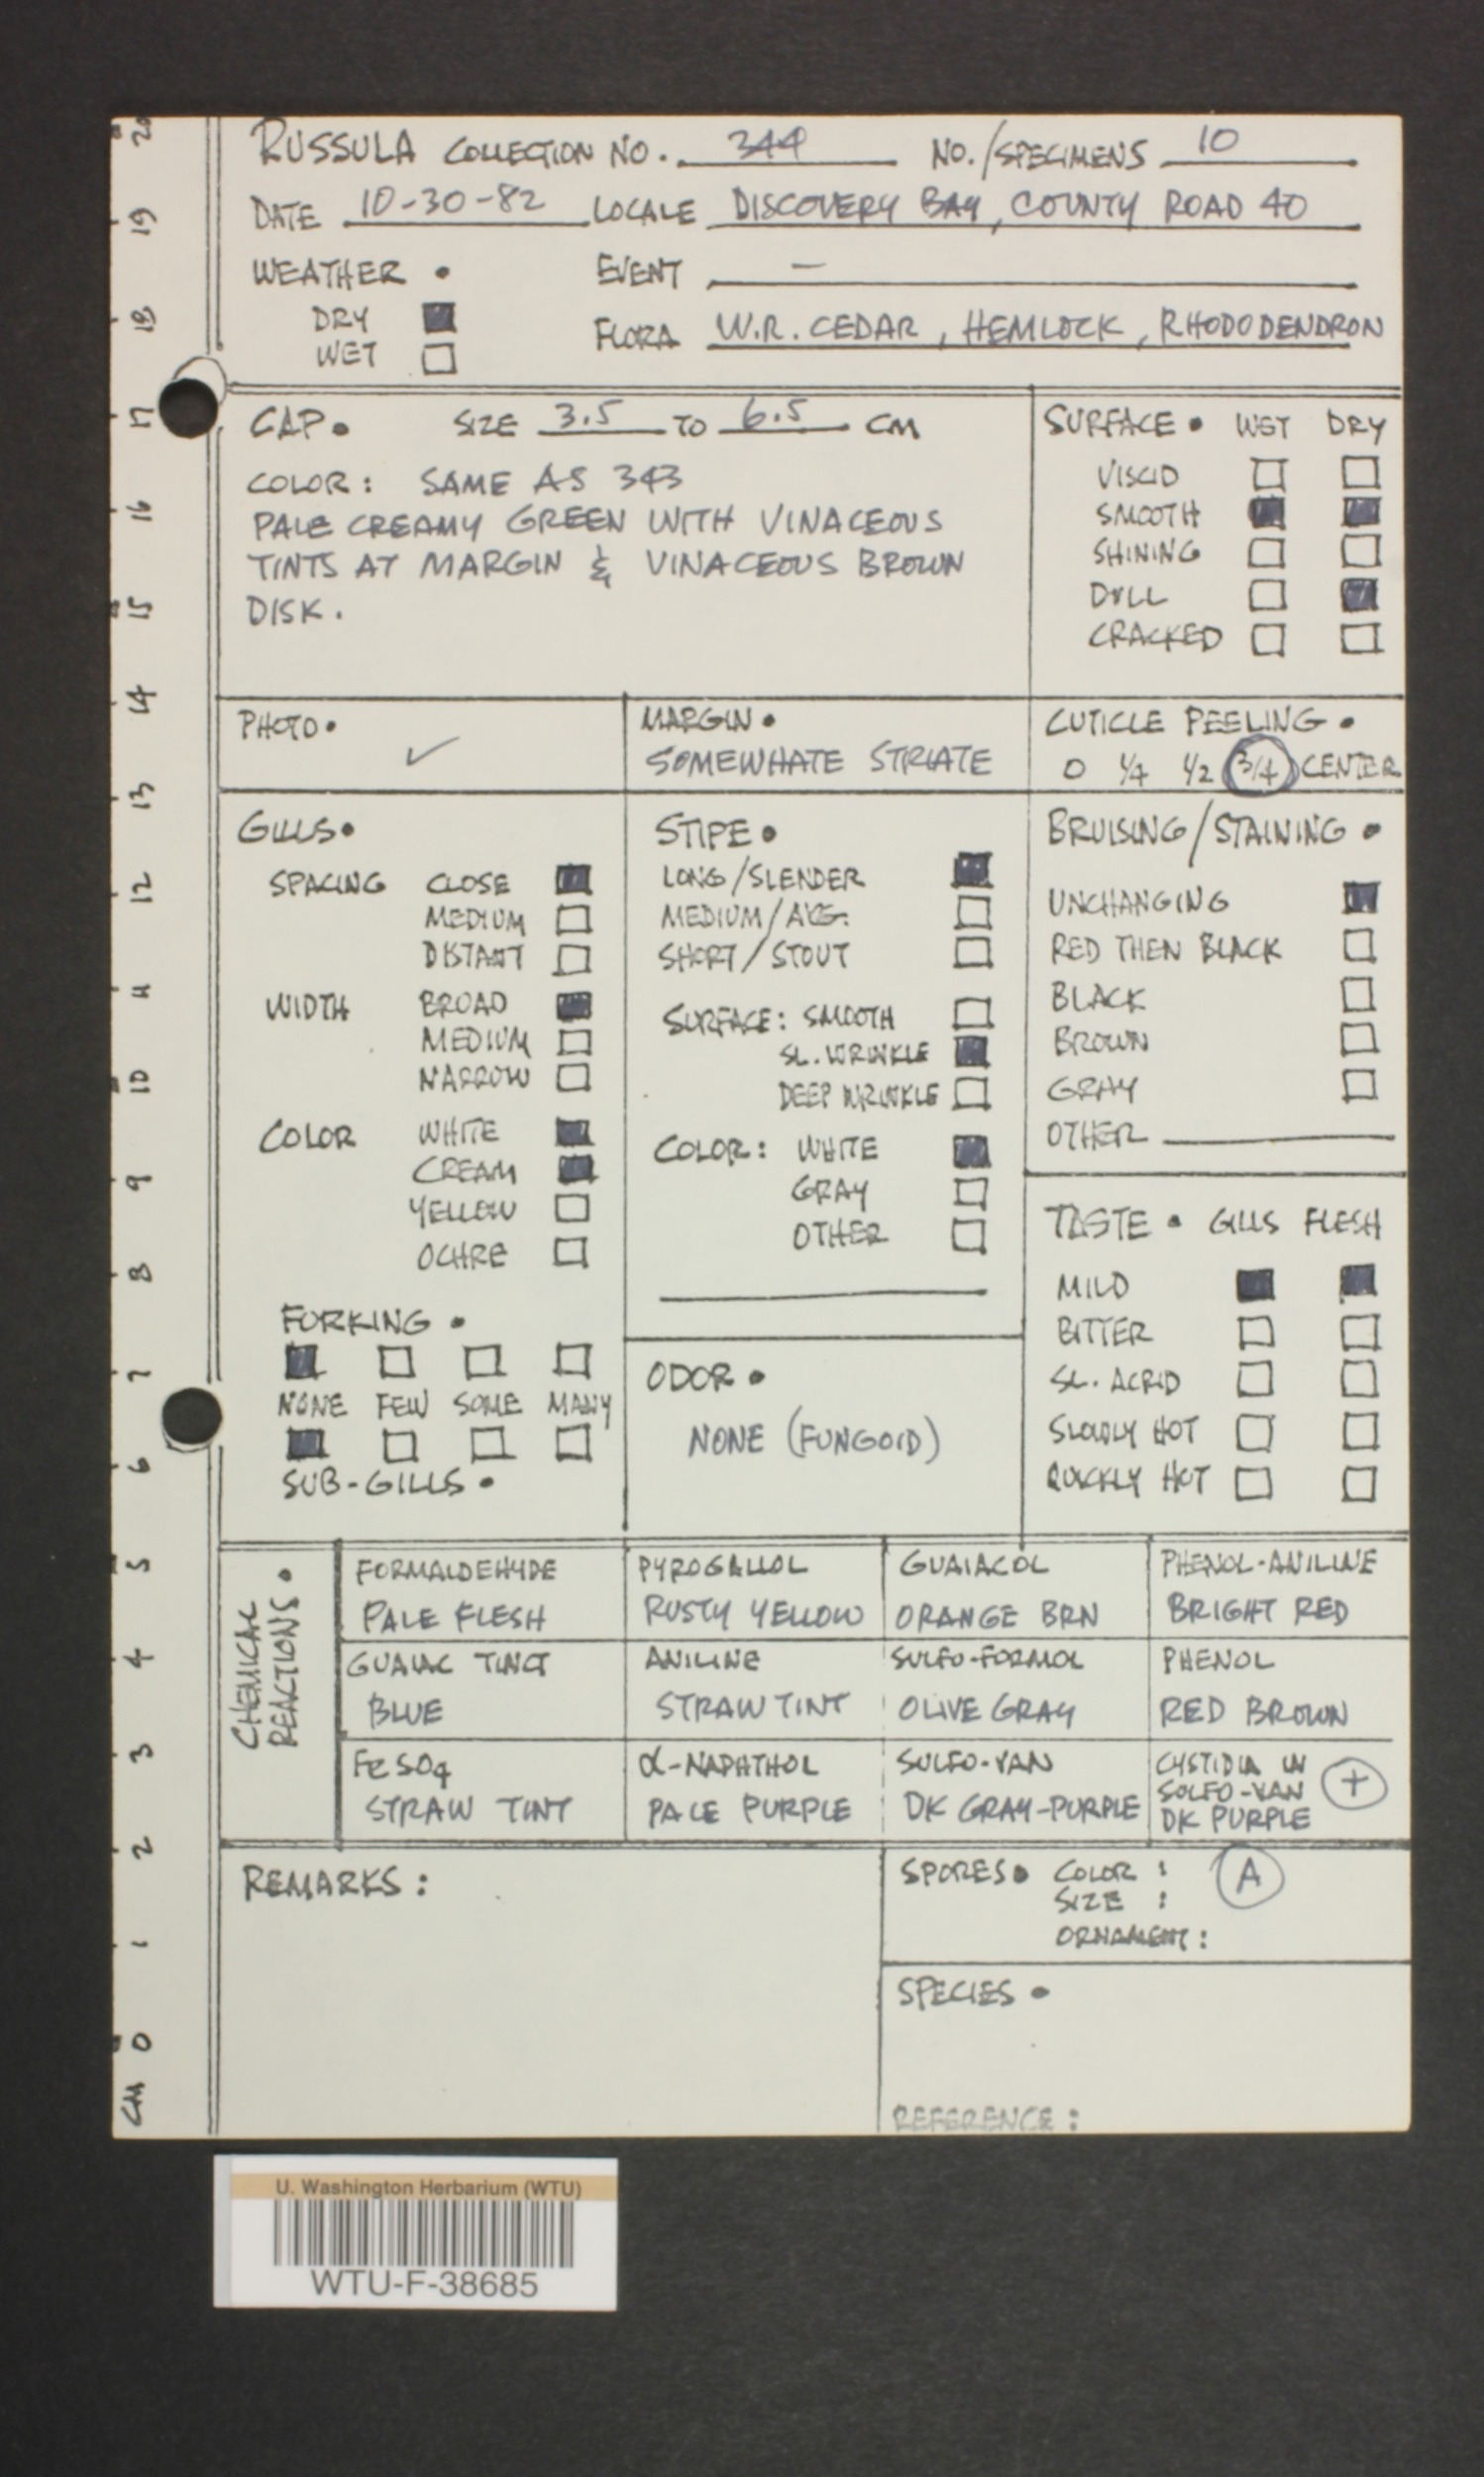 RUSSULA COLLECTION NO. 344 NO./SPECIMENS 10
DATE 10-30-82 LOCALE DISCOVERY BAY, COUNTY ROAD 40
WEATHER • EVENT —
DRY
WET
FLORA W.R. CEDAR, HEMLOCK, RHODODENDRON
CAP • SIZE 3.5 TO 6.5 CM
COLOR: SAME AS 343
PALE CREAMY GREEN WITH VINACEOUS
TINTS AT MARGIN & VINACEOUS BROWN
DISK.
SURFACE • WET DRY
VISCID
SMOOTH
SHINING
DULL
CRACKED
PHOTO • ✓
MARGIN •
SOMEWHATE STRIATE
CUTICLE PEELING •
0 1/4 1/2 3/4 CENTER
GILLS •
SPACING CLOSE
MEDIUM
DISTANT
WIDTH BROAD
MEDIUM
NARROW
COLOR WHITE
CREAM
YELLOW
OCHRE
FORKING •
NONE FEW SOME MANY
SUB-GILLS •
STIPE •
LONG/SLENDER
MEDIUM/AVG.
SHORT/STOUT
SURFACE: SMOOTH
SL. WRINKLE
DEEP WRINKLE
COLOR: WHITE
GRAY
OTHER
ODOR •
NONE (FUNGOID)
BRUISING/STAINING •
UNCHANGING
RED THEN BLACK
BLACK
BROWN
GRAY
OTHER
TASTE • GILLS FLESH
MILD
BITTER
SL. ACRID
SLOWLY HOT
QUICKLY HOT
CHEMICAL
REACTIONS •
FORMALDEHYDE PYROGALLOL GUAIACOL PHENOL-ANILINE
PALE FLESH RUSTY YELLOW ORANGE BRN BRIGHT RED
GUAIAC TINCT ANILINE SULFO-FORMOL PHENOL
BLUE STRAW TINT OLIVE GRAY RED BROWN
FeSO4 α-NAPHTHOL SULFO-VAN CYSTIDIA IN
SULFO-VAN +
STRAW TINT PALE PURPLE DK GRAY-PURPLE DK PURPLE
REMARKS:
SPORES • COLOR: A
SIZE :
ORNAMENT:
SPECIES •
REFERENCE:
CM 0 1 2 3 4 5 6 7 8 9 10 11 12 13 14 15 16 17 18 19 20
U. Washington Herbarium (WTU)
WTU-F-38685